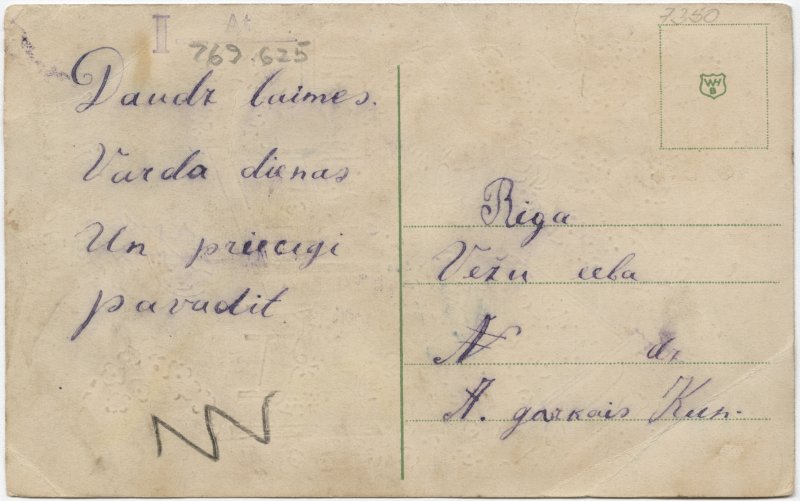 II At
769.625
7350
WH
B
Daudz laimes.
Varda dienas
Un priecigi
pavadit
Riga
Vežu eeba
N d,
A. garkais Kun.